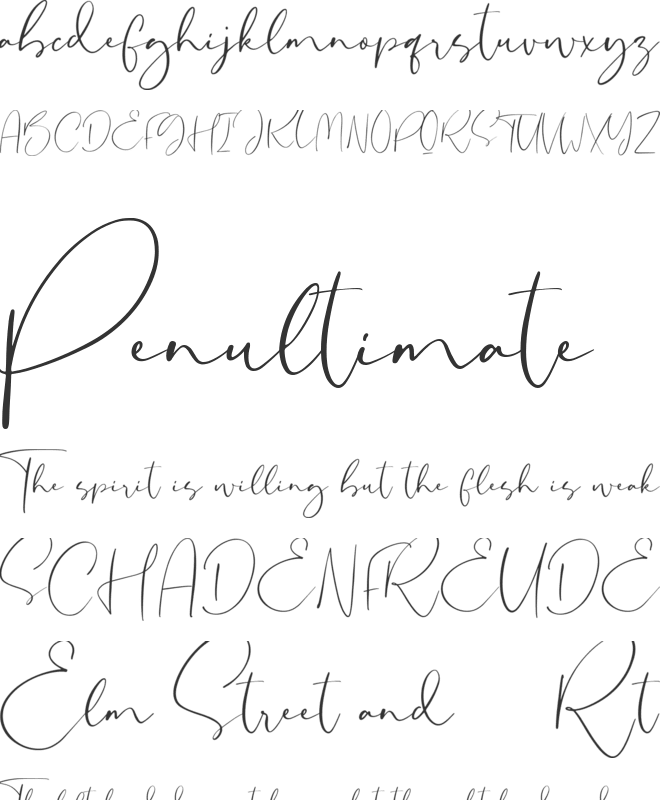 abcdefghijklmnopqrstuvwxyz
ABCDEFGHIJKLMNOPQRSTUVWXYZ
Penultimate
The spirit is willing but the flesh is weak
SCHADENFREUDE
Elm Street and Rt
The